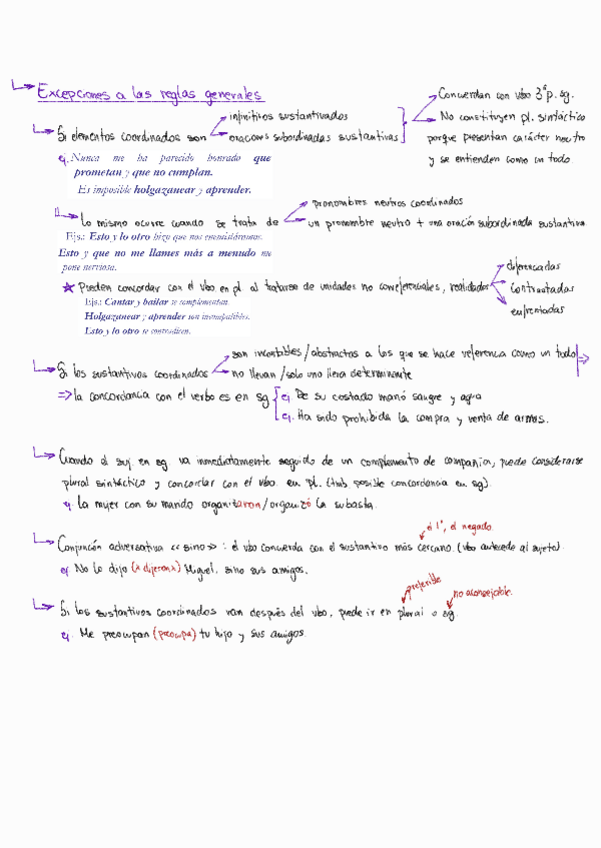 Excepciones a las reglas generales
Si elementos coordinados son
infinitivos sustantivados
oraciones subordinadas sustantivas
Concuerdan con vbo 3ª p. sg.
No constituyen pl. sintáctico
porque presentan carácter neutro
y se entienden como un todo
ej. Nunca me ha parecido honrado que
prometan y que no cumplan.
Es imposible holgazanear y aprender.
Lo mismo ocurre cuando se trata de
pronombres neutros coordinados
un pronombre neutro + una oración subordinada sustantiva
Ejs.: Esto y lo otro hizo que nos enemistáramos.
Esto y que no me llames más a menudo me
pone nerviosa.
★ Pueden concordar con el vbo en pl al tratarse de unidades no correferenciales, realidades
diferenciadas
contrastadas
enfrentadas
Ejs.: Cantar y bailar se complementan.
Holgazanear y aprender son incompatibles.
Esto y lo otro se contradicen.
Si los sustantivos coordinados
son incontables/abstractos a los que se hace referencia como un todo ⇒
no llevan/solo uno lleva determinante
⇒ la concordancia con el verbo es en sg
ej. De su costado manó sangre y agua
ej. Ha sido prohibida la compra y venta de armas.
Cuando el suj. en sg. va inmediatamente seguido de un complemento de compañía, puede considerarse
plural sintáctico y concordar con el vbo. en pl. (tmb posible concordancia en sg).
ej. La mujer con su marido organizaron/organizó la subasta.
ó 1º, el negado.
Conjunción adversativa «sino»: el vbo concuerda con el sustantivo más cercano. (vbo antecede al sujeto).
ej. No lo dijo (x dijeron x) Miguel, sino sus amigos.
preferible
no aconsejable.
Si los sustantivos coordinados van después del vbo, puede ir en plural o sg
ej. Me preocupan (preocupa) tu hijo y sus amigos.